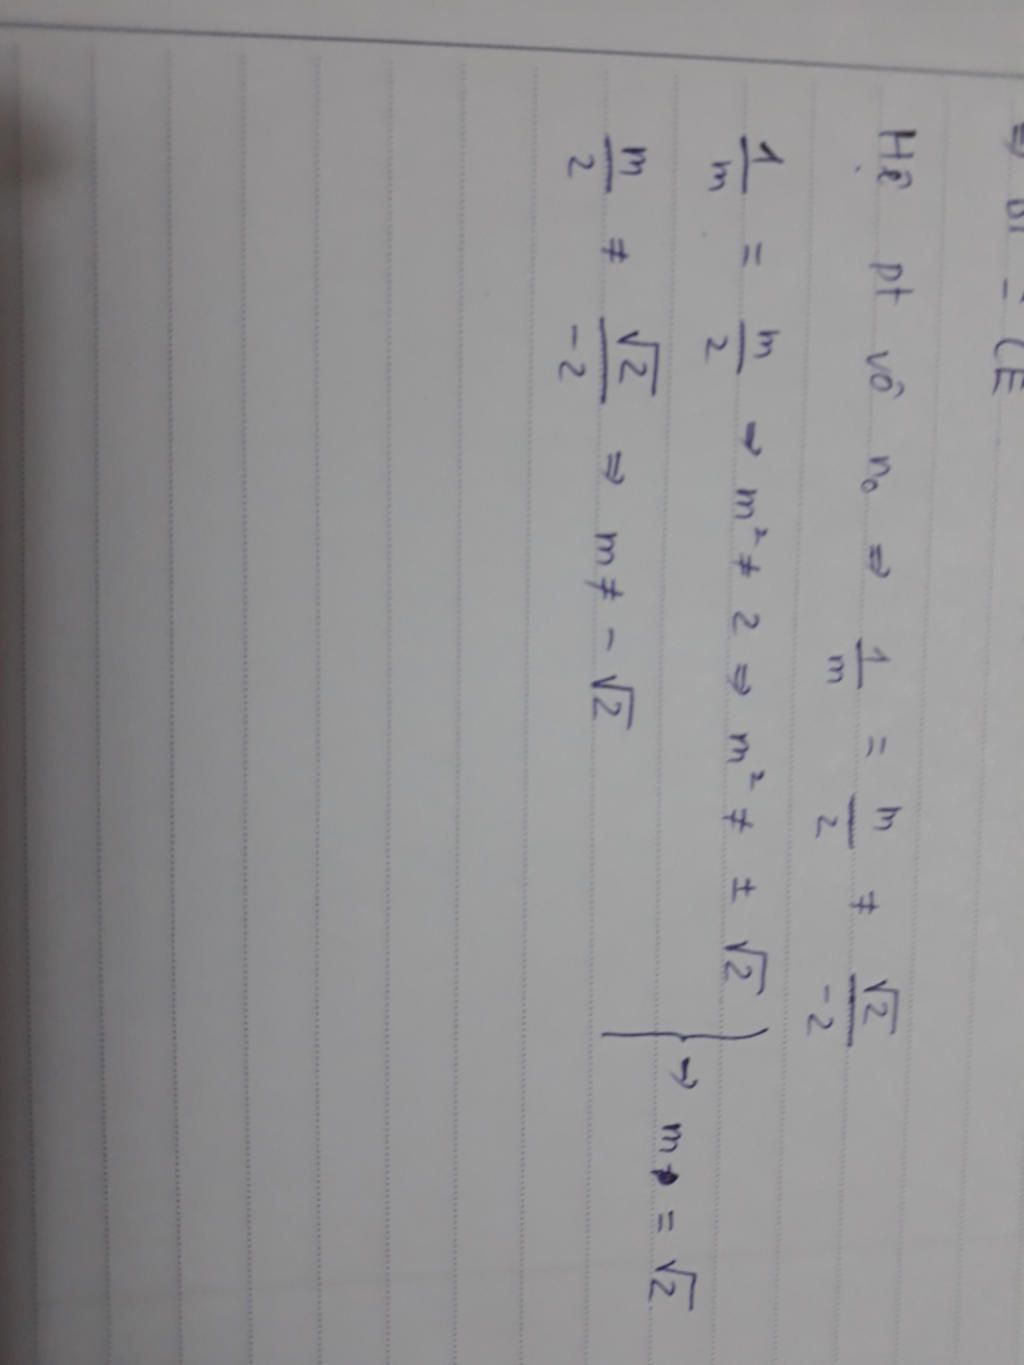 Hệ pt vô no ⇒ 1/m = m/2 ≠ √2/-2
1/m = m/2 → m² ≠ 2 ⇒ m² ≠ ± √2
m/2 ≠ √2/-2 ⇒ m ≠ - √2
} → m = √2